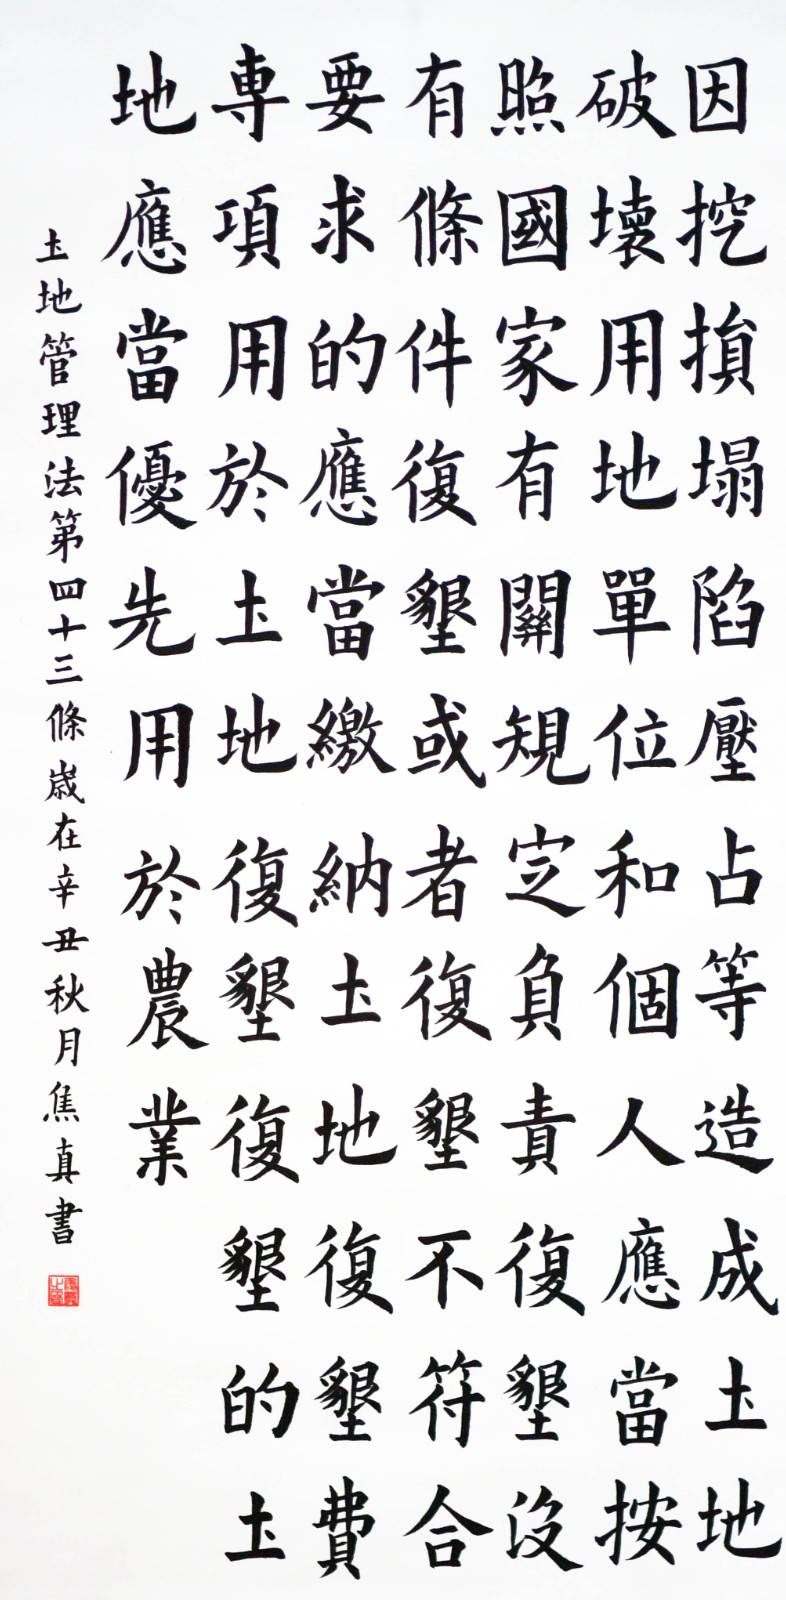 因挖損塌陷壓占等造成土地
破壞用地單位和個人應當按
照國家有關規定負責復墾没
有條件復墾或者復墾不符合
要求的應當繳納土地復墾費
専項用於土地復墾復墾的土
地應當優先用於農業
土地管理法第四十三條歲在辛丑秋月焦真書